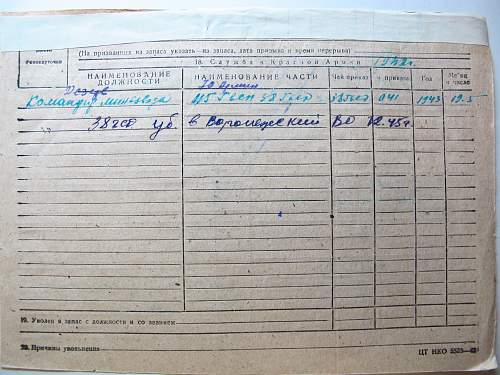 (На призванных из запаса указать—из запаса, дата призыва и время перерыва)
18. Служба в Красной Армии 1942г.
НАИМЕНОВАНИЕ ДОЛЖНОСТИ
НАИМЕНОВАНИЕ ЧАСТИ
Чей приказ
№ приказа
Год
Ме-ц и число
Командир мин. взвода 115 Гв сп 38 Гв сд 041 1943 19.5
уб. в Воронежский ВО 12.45г.
19. Уволен в запас с должности и со званием
20. Причины увольнения
ЦТ НКО 5525—43